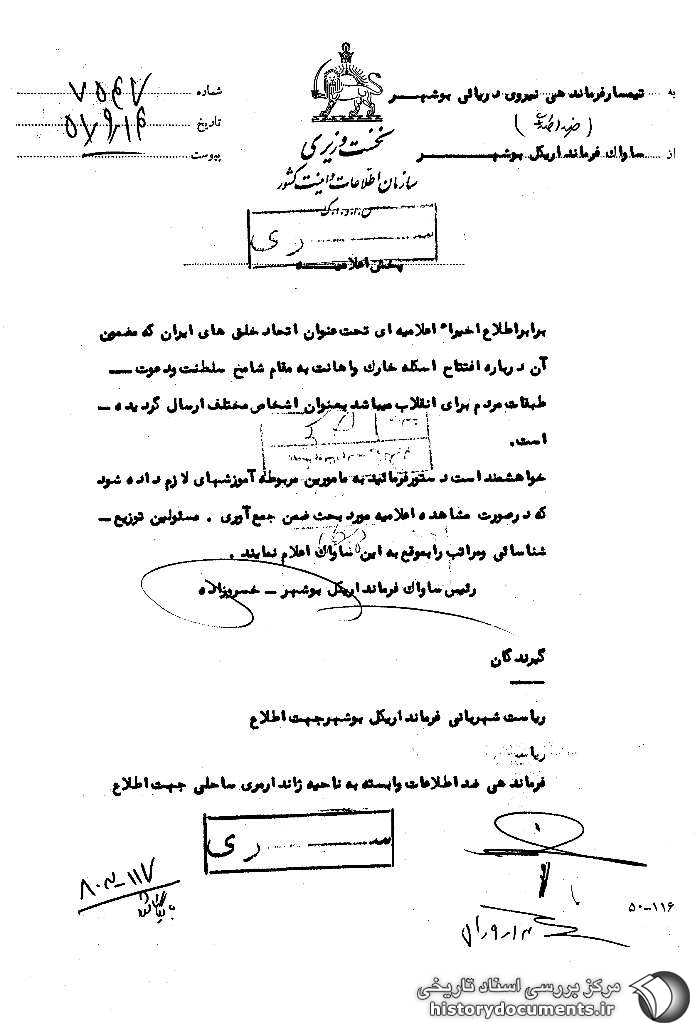 به تیمسار فرماندهی نیروی دریائی بوشهر
شماره ۷۵۴۷
تاریخ
پیوست
از ساواک فرمانداریکل بوشهر
نخست وزیری
سازمان اطلاعات و امنیت کشور
س.ا.و.ا.ک
سری
پخش اعلامیه
برابر اطلاع اخیراً اعلامیه ای تحت عنوان اتحاد خلق های ایران که مضمون
آن درباره افتتاح اسکله خارک و اهانت به مقام شامخ سلطنت و دعوت ــ
طبقات مردم برای انقلاب میباشد بعنوان اشخاص مختلف ارسال گردیده ــ
است.
خواهشمند است دستور فرمائید به مامورین مربوطه آموزشهای لازم داده شود
که در صورت مشاهده اعلامیه مورد بحث ضمن جمع آوری . مسئولین توزیع ــ
شناسائی و مراتب را بموقع به این ساواک اعلام نمایند .
رئیس ساواک فرمانداریکل بوشهر ــ خسروزاده
گیرندگان
ریاست شهربانی فرمانداریکل بوشهر جهت اطلاع
ریاست
فرماندهی ضد اطلاعات وابسته به ناحیه ژاندارمری ساحلی جهت اطلاع
سری
بایگانی شود
۵۰-۱۱۶
مرکز بررسی اسناد تاریخی
historydocuments.ir